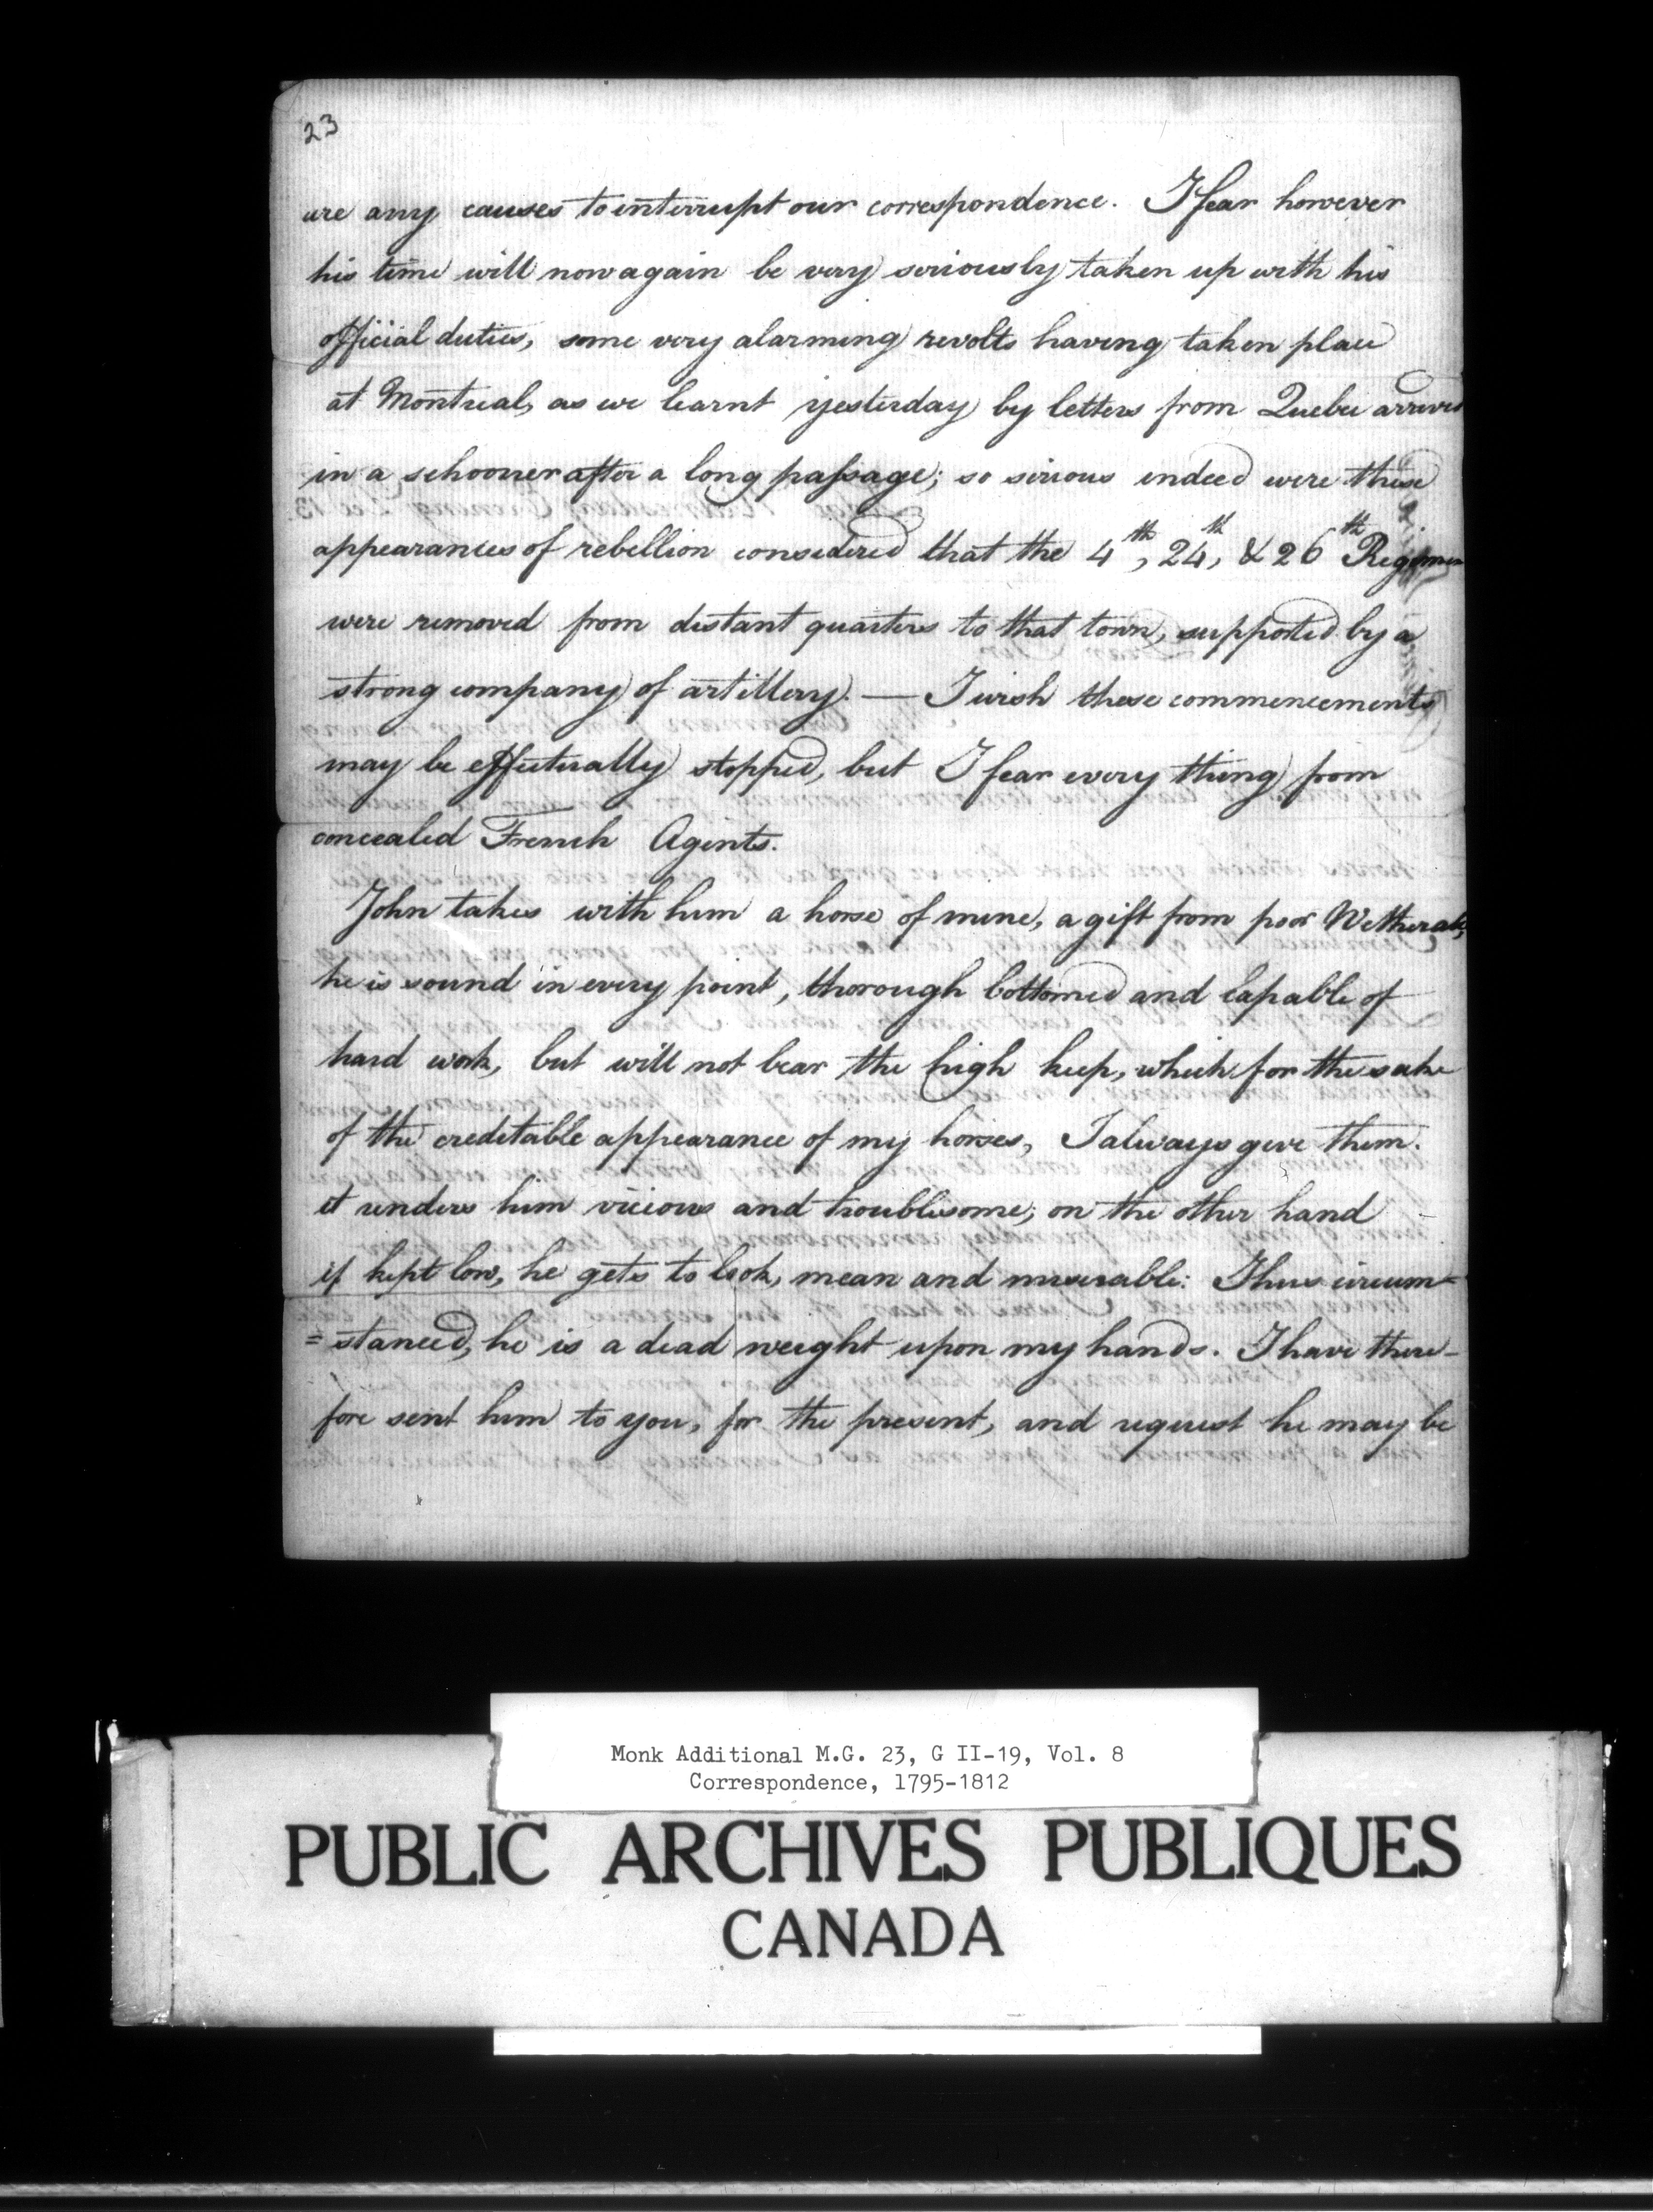 23
are any causes to interrupt our correspondence. I fear however
his time will now again be very seriously taken up with his
official duties, some very alarming revolts having taken place
at Montreal, as we learnt yesterday by letters from Quebec arrived
in a schooner after a long passage; so serious indeed were these
appearances of rebellion considered that the 4th, 24th, & 26th Regimen
were removed from distant quarters to that town, supported by a
strong company of artillery. — I wish these commencements
may be effectually stopped, but I fear every thing from
concealed French Agents.
John takes with him a horse of mine, a gift from poor Wetherall,
he is sound in every point, thorough bottomed and capable of
hard work, but will not bear the high keep, which for the sake
of the creditable appearance of my horses, I always give them.
it renders him vicious and troublesome; on the other hand
if kept low, he gets to look, mean and miserable: Thus circum=
=stanced, he is a dead weight upon my hands. I have there-
fore sent him to you, for the present, and request he may be
Monk Additional M.G. 23, G II-19, Vol. 8
Correspondence, 1795-1812
PUBLIC ARCHIVES PUBLIQUES
CANADA